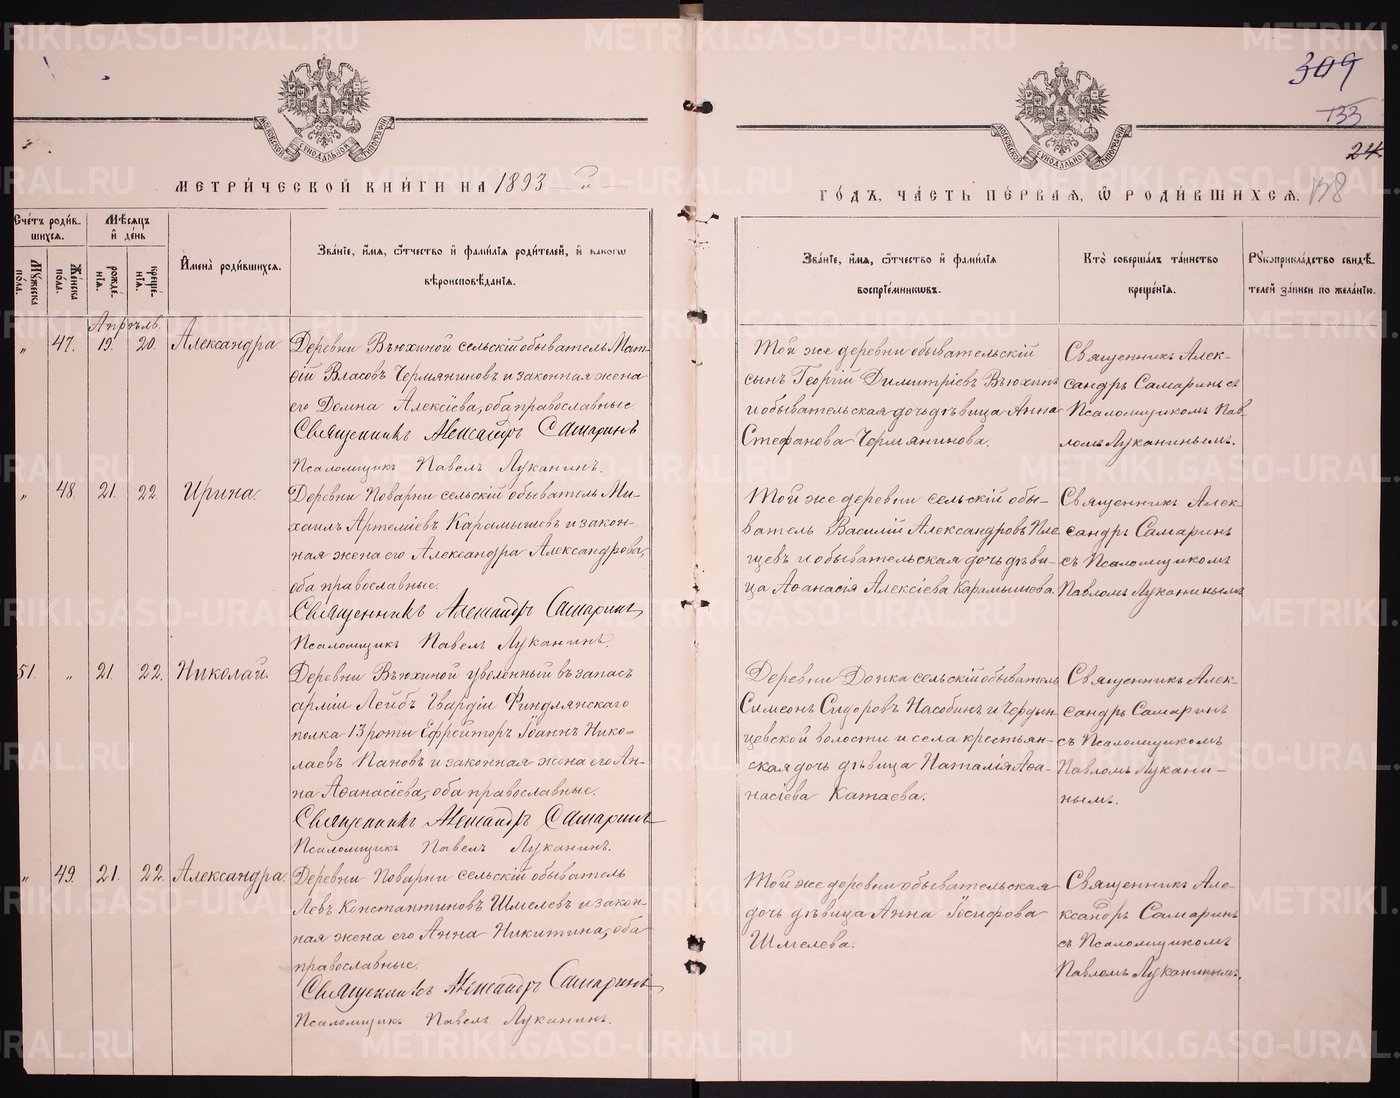 309
133
24
128
МОСКОВСКОЙ СѴНОДАЛЬНОЙ ТИПОГРАФІИ
МОСКОВСКОЙ СѴНОДАЛЬНОЙ ТИПОГРАФІИ
МЕТРИ́ЧЕСКОЙ КНИ́ГИ НА 1893 й
ГО́ДЪ, ЧА́СТЬ ПЕ́РВАЯ, Ѿ РОДИ́ВШИХСЯ.
Сче́тъ роди́вшихся.
Мѹжеска по́ла.
Же́нска по́ла.
Мѣ́сяцъ и҆ де́нь
рожде́нїя.
креще́нїя.
И҆мена̀ роди́вшихся.
Зва́нїе, и҆́мя, ѻ҆́тчество и҆ фами́лїя роди́телей, и҆ како́гѡ
вѣроисповѣ́данїя.
Зва́нїе, и҆́мя, ѻ҆́тчество и҆ фами́лїя
воспрїе́мникѡвъ.
Кто̀ соверша́лъ та́инство
креще́нїя.
Рѹкоприкла́дство свидѣ́-
телей за́писи по жела́нїю.
Апрѣль.
„ 47. 19. 20. Александра
Деревни Вьюхиной сельскій обыватель Мат-
ѳій Власовъ Чермяниновъ и законная жена
его Домна Алексіева, оба православные
Священникъ Александръ Самаринъ
Псаломщикъ Павелъ Луканинъ.
Той же деревни обывательскій
сынъ Георгій Димитріевъ Вьюхинъ
и обывательская дочь дѣвица Анна
Стефанова Чермянинова.
Священникъ Алек-
сандръ Самаринъ съ
Псаломщикомъ Пав-
ломъ Луканинымъ.
„ 48. 21. 22. Ирина.
Деревни Поварни сельскій обыватель Ми-
хаилъ Артеміевъ Карамышевъ и закон-
ная жена его Александра Александрова,
оба православные.
Священникъ Александръ Самаринъ
Псаломщикъ Павелъ Луканинъ.
Той же деревни сельскій обы-
ватель Василій Александровъ Пле
щевъ и обывательская дочь дѣви-
ца Аѳанасія Алексіева Карамышева.
Священникъ Алек-
сандръ Самаринъ
съ Псаломщикомъ
Павломъ Луканинымъ
51. „ 21. 22. Николай.
Деревни Вьюхиной уволенный въ запасъ
арміи Лейбъ Гвардіи Финдлянскаго
полка 13 роты Ефрейторъ Іоаннъ Нико-
лаевъ Пановъ и законная жена его Ан-
на Аѳанасіева, оба православные.
Священникъ Александръ Самаринъ
Псаломщикъ Павелъ Луканинъ.
Деревни Допка сельскій обыватель
Симеонъ Сидоровъ Насобинъ и Чердын-
цевской волости и села крестьян-
ская дочь дѣвица Наталія Аѳа-
насіева Катаева.
Священникъ Алек-
сандръ Самаринъ
съ Псаломщикомъ
Павломъ Лукани-
нымъ.
„ 49. 21. 22. Александра.
Деревни Поварни сельскій обыватель
Левъ Константиновъ Шмелевъ и закон-
ная жена его Анна Никитина, оба
православные.
Священникъ Александръ Самаринъ
Псаломщикъ Павелъ Луканинъ.
Той же деревни обывательская
дочь дѣвица Анна Іосифова
Шмелева.
Священникъ Але-
ксандръ Самаринъ
съ Псаломщикомъ
Павломъ Луканинымъ.
METRIKI.GASO-URAL.RU